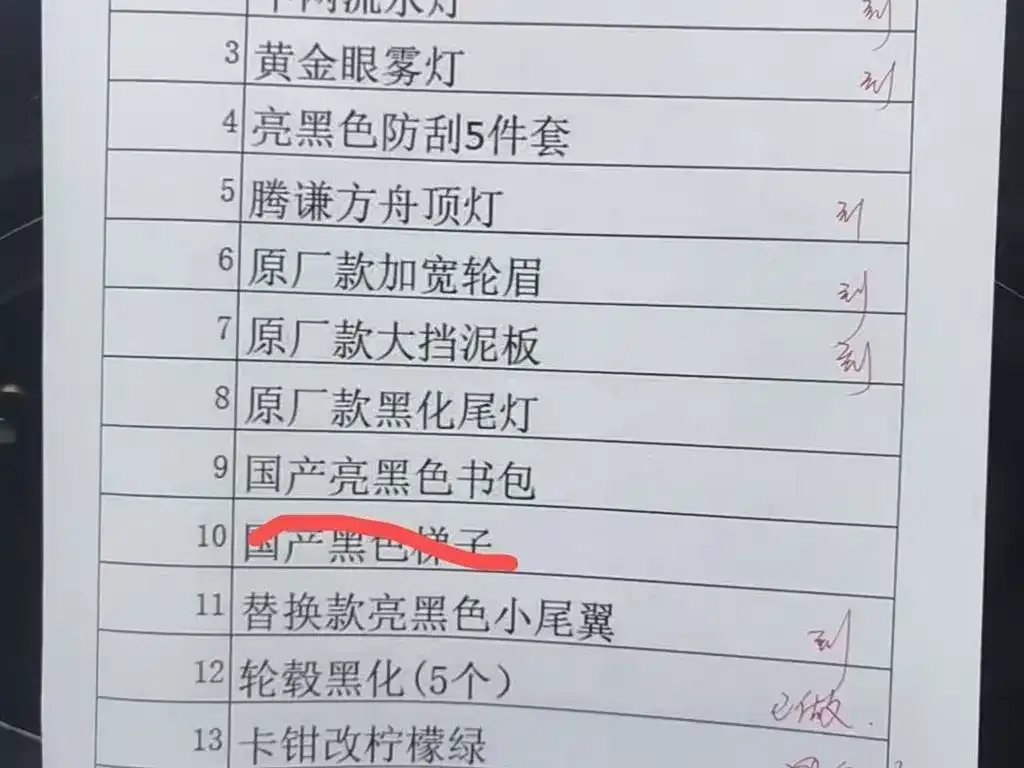 中网流水灯 到
3 黄金眼雾灯 到
4 亮黑色防刮5件套
5 腾谦方舟顶灯 到
6 原厂款加宽轮眉 到
7 原厂款大挡泥板 到
8 原厂款黑化尾灯
9 国产亮黑色书包
10 国产黑色梯子
11 替换款亮黑色小尾翼 到
12 轮毂黑化(5个) 已做.
13 卡钳改柠檬绿